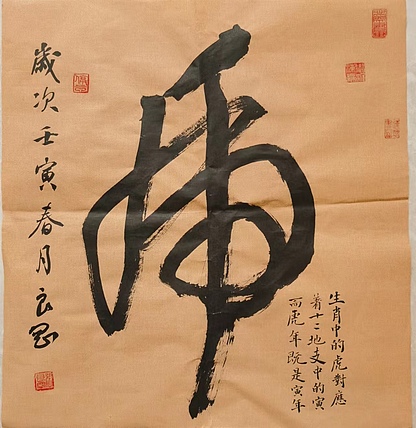 虎
生肖中的虎對應
着十二地支中的寅
而虎年既是寅年
歲次壬寅春月良